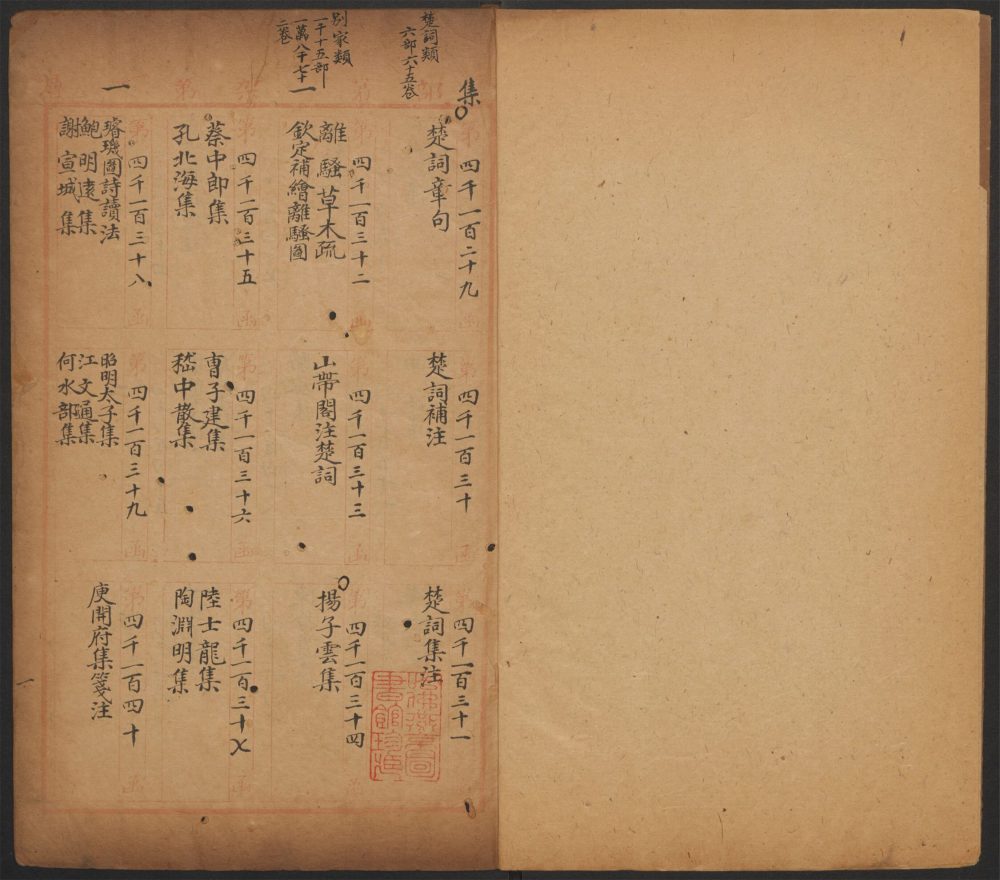 集
楚詞類
六部六十五卷
第四千一百二十九函
楚詞章句
第四千一百三十函
楚詞補注
第四千一百三十一
楚詞集注
別家類
一千十五部
一萬八千七十二卷
一
第四千一百三十二函
離騷草木疏
欽定補繪離騷圖
第四千一百三十三函
山帶閣注楚詞
第四千一百三十四函
揚子雲集
第四千一百三十五函
蔡中郎集
孔北海集
第四千一百三十六函
曹子建集
嵇中散集
第四千一百三十七函
陸士龍集
陶淵明集
一
第四千一百三十八函
璿璣圖詩讀法
鮑明遠集
謝宣城集
第四千一百三十九函
昭明太子集
江文通集
何水部集
第四千一百四十函
庾開府集箋注
一
哈佛燕京圖
書館珍藏